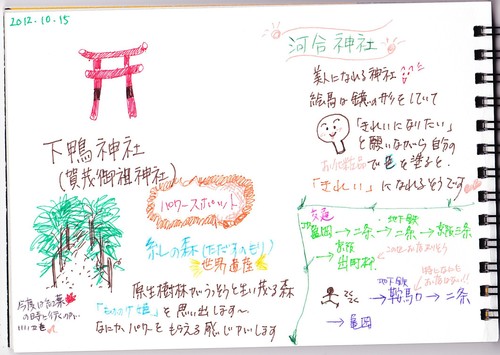 2012.10.15
下鴨神社
(賀茂御祖神社)
パワースポット
糺しの森(ただすのもり)
世界遺産
原生樹林でうっそうと生い茂る森
「もののけ姫」を思い出します〜
なにか、パワーをもらえる感じがします
今度は紅葉
の時と行くのがいい
河合神社
美人になれる神社
絵馬は鏡の形をしていて
「きれいになりたい」
と願いながら自分の
お化粧品で色を塗ると、
「きれい」になれるそうです
交通
亀岡→二条→地下鉄 二条→京阪三条
京阪
出町柳
地下鉄
鞍馬口→二条
→亀岡